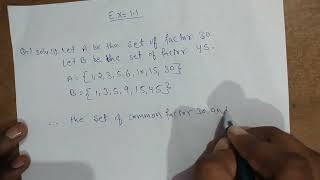 Ex= 1.1
Q.1 solution Let A be the set of factor 30.
Let B be the set of factor 45.
A = {1,2,3,5,6,10,15,30}
B = {1,3,5,9,15,45}
∴ the set of common factor 30 and